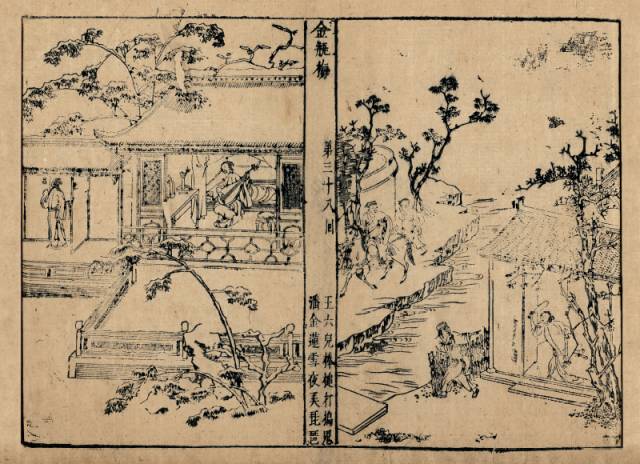 金瓶梅
第三十八囘
王六兒棒槌打搗鬼
潘金蓮雪夜弄琵琶